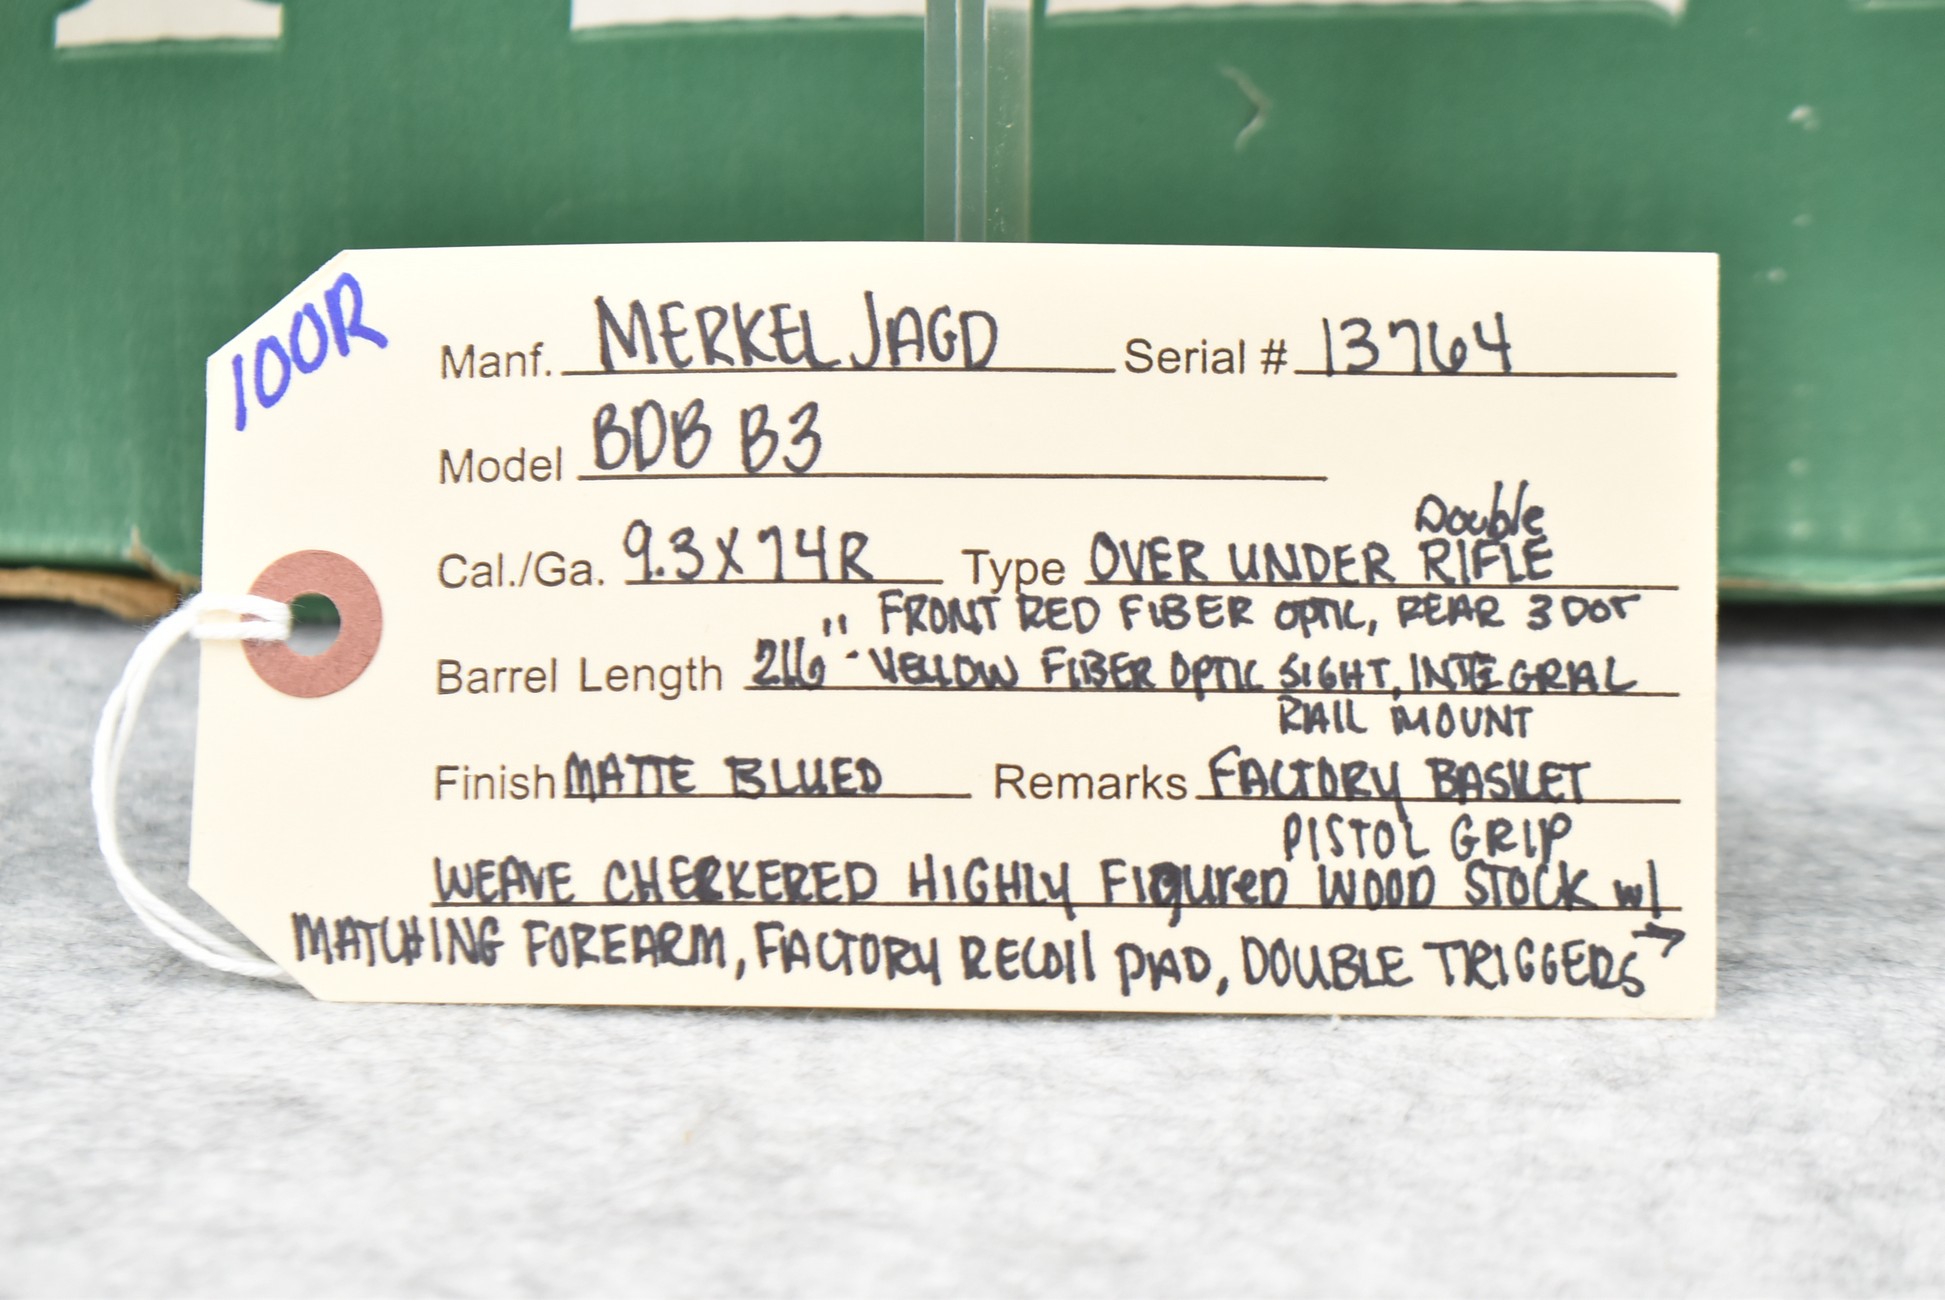 100R
Manf. MERKEL JAGD Serial # 13764
Model BDB B3
Double
Cal./Ga. 9.3X74R Type OVER UNDER RIFLE
FRONT RED FIBER OPTIC, REAR 3 DOT
Barrel Length 26" - YELLOW FIBER OPTIC SIGHT, INTEGRAL
RAIL MOUNT
Finish MATTE BLUED Remarks FACTORY BASKET
PISTOL GRIP
WEAVE CHERKERED HIGHLY FIGURED WOOD STOCK w/
MATCHING FOREARM, FACTORY RECOIL PAD, DOUBLE TRIGGERS →